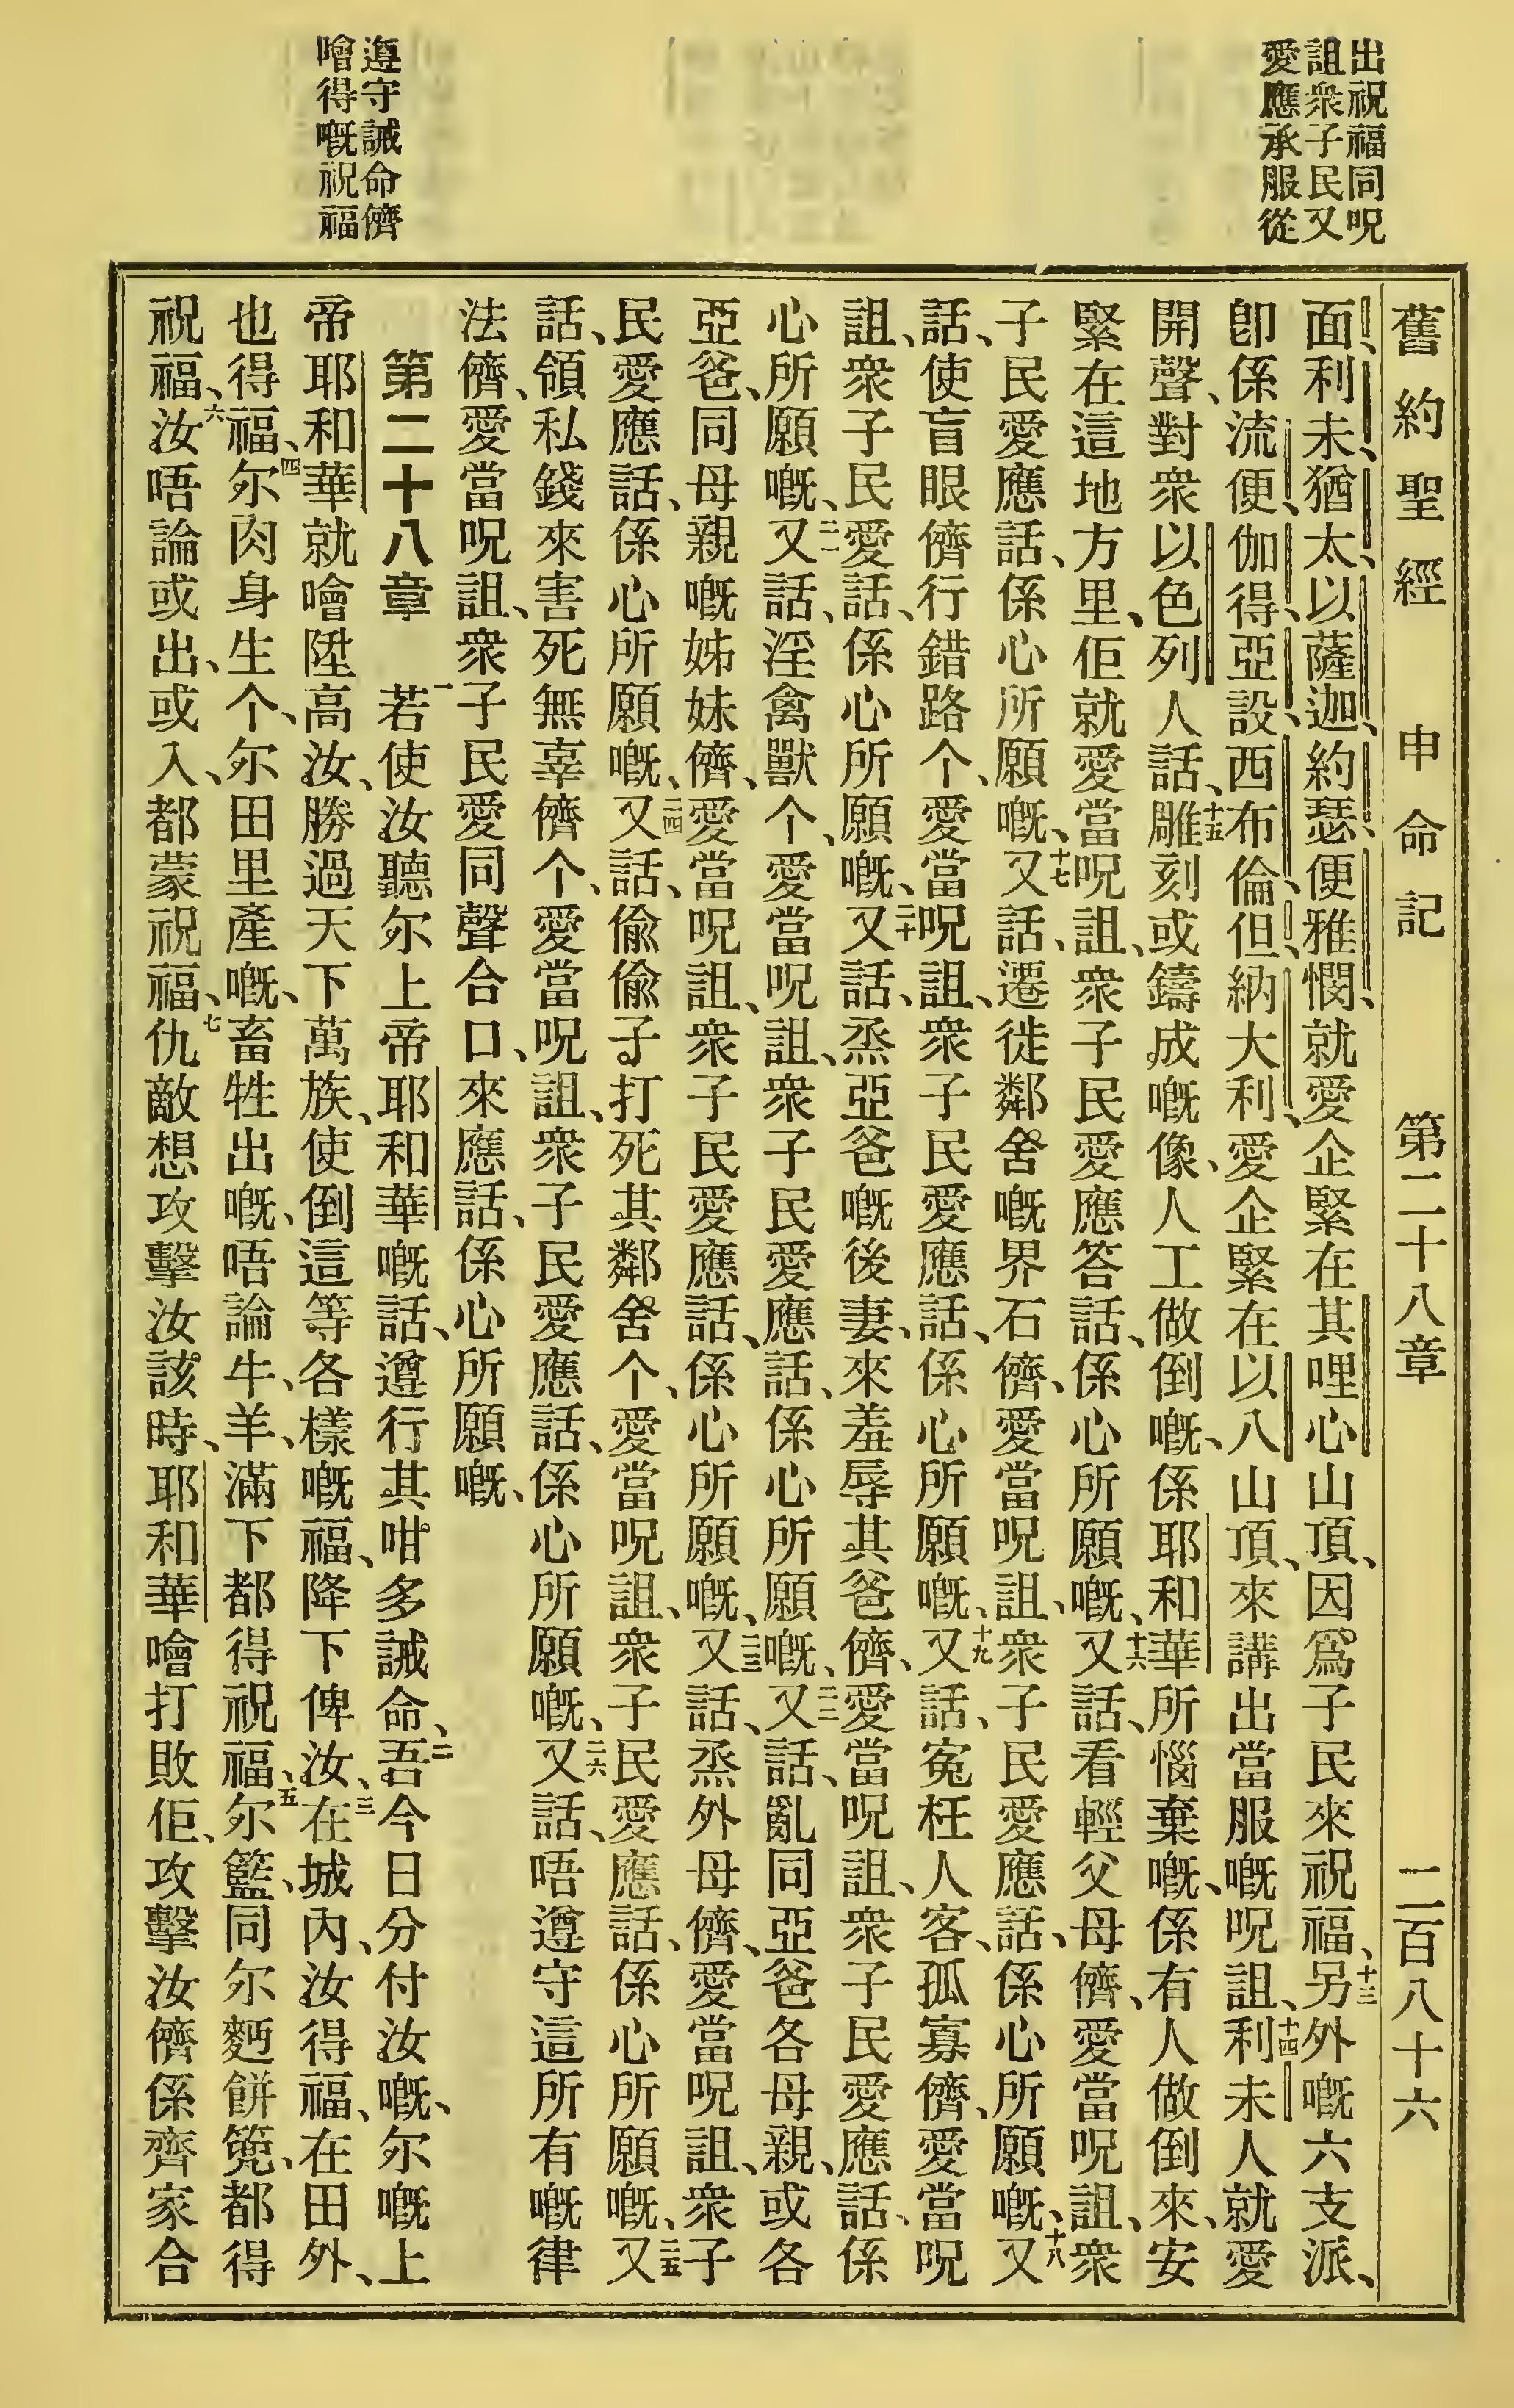 出祝福同呪
詛衆子民又
愛應承服從
遵守誡命儕
噲得嘅祝福
舊約聖經 申命記 第二十八章 二百八十六
面、利未、猶太、以薩迦、約瑟、便雅憫、就愛企緊在其哩心山頂、因爲子民來祝福、十三另外嘅六支派、
卽係流便、伽得、亞設、西布倫、但、納大利、愛企緊在以八山頂、來講出當服嘅呪詛、十四利未人就愛
開聲、對衆以色列人話、十五雕刻或鑄成嘅像、人工做倒嘅、係耶和華所惱棄嘅、係有人做倒來、安
緊在這地方里、佢就愛當呪詛、衆子民愛應答話、係心所願嘅、十六又話、看輕父母儕、愛當呪詛、衆
子民愛應話、係心所願嘅、十七又話、遷徙鄰舍嘅界石儕、愛當呪詛、衆子民愛應話、係心所願嘅、十八又
話、使盲眼儕行錯路个、愛當呪詛、衆子民愛應話、係心所願嘅、十九又話、寃枉人客、孤寡儕、愛當呪
詛、衆子民愛話、係心所願嘅、二十又話、烝亞爸嘅後妻、來羞辱其爸儕、愛當呪詛、衆子民愛應話、係
心所願嘅、二一又話、淫禽獸个、愛當呪詛、衆子民愛應話、係心所願嘅、二二又話、亂同亞爸各母親、或各
亞爸、同母親嘅姊妹儕、愛當呪詛、衆子民愛應話、係心所願嘅、二三又話、烝外母儕、愛當呪詛、衆子
民愛應話、係心所願嘅、二四又話、偸偸子打死其鄰舍个、愛當呪詛、衆子民愛應話、係心所願嘅、二五又
話、領私錢來害死無辜儕个、愛當呪詛、衆子民愛應話、係心所願嘅、二六又話、唔遵守這所有嘅律
法儕、愛當呪詛、衆子民愛同聲合口、來應話、係心所願嘅、
第二十八章 一若使汝聽尔上帝耶和華嘅話、遵行其咁多誡命、二吾今日分付汝嘅、尔嘅上
帝耶和華就噲陞高汝、勝過天下萬族、使倒這等各樣嘅福、降下俾汝、三在城內、汝得福、在田外、
也得福、四尔肉身生个、尔田里產嘅、畜牲出嘅、唔論牛、羊、滿下都得祝福、五尔籃、同尔麪餠篼、都得
祝福、六汝唔論或出、或入、都蒙祝福、七仇敵想攻擊汝該時、耶和華噲打敗佢、攻擊汝儕係齊家合